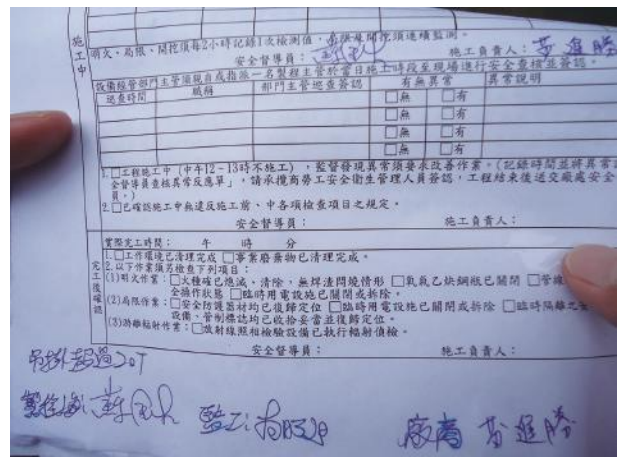 施工中
明火、局限、開挖須每2小時記錄1次檢測值，局限每開挖須連續監測。
安全督導員： 施工負責人：
設備經管部門主管須親自或指派一名製程主管於當日施工時段至現場進行安全查核並簽認。
巡查時間 職稱 部門主管巡查簽認 有無異常 異常說明
□無 □有
□無 □有
□無 □有
□無 □有
1.□工程施工中（中午12-13時不施工），監督發現異常須要求改善作業。（記錄時間並將異常
全督導員查核異常反應單」，請承攬商勞工安全衛生管理人員簽認，工程結束後送交廠處安全
員。）
2.□已確認施工中無違反施工前、中各項檢查項目之規定。
安全督導員： 施工負責人：
完工後確認
實際完工時間： 午 時 分
1.□工作環境已清理完成 □事業廢棄物已清理完成。
2.以下作業須另檢查下列項目：
(1)明火作業：□火種確已熄滅、清除，無焊渣悶燒情形 □氧氣乙炔鋼瓶已關閉 □管線
全操作狀態 □臨時用電設施已關閉或拆除。
(2)局限作業：□安全防護器材均已復歸定位 □臨時用電設施已關閉或拆除 □臨時隔離之
設備、管制標誌均已收拾妥當並復歸定位。
(3)游離輻射作業：□放射線照相檢驗設備已執行輻射偵檢。
安全督導員： 施工負責人：
吊掛超過20T
監工:
廠商